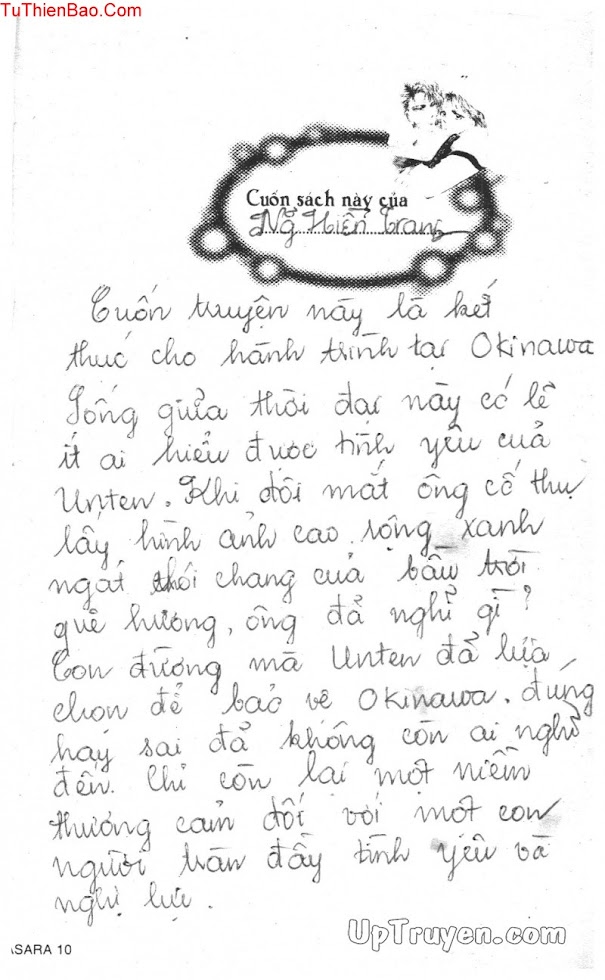 TuThienBao.Com
Cuốn sách này của
Ng Hiền Trang
Cuốn truyện này là kết
thúc cho hành trình tại Okinawa
Sống giửa thời đại này có lẽ
ít ai hiểu được tình yêu của
Unten. Khi đôi mắt ông cố thu
lấy hình ảnh cao rộng xanh
ngát chói chang của bầu trời
quê hương, ông đả nghỉ gì?
Con đường mà Unten đả lựa
chọn để bảo vệ Okinawa, đúng
hay sai đả không còn ai nghỉ
đến. Chỉ còn lại một niềm
thương cảm đối với một con
người tràn đầy tình yêu và
nghị lực.
ASARA 10
UpTruyen.com